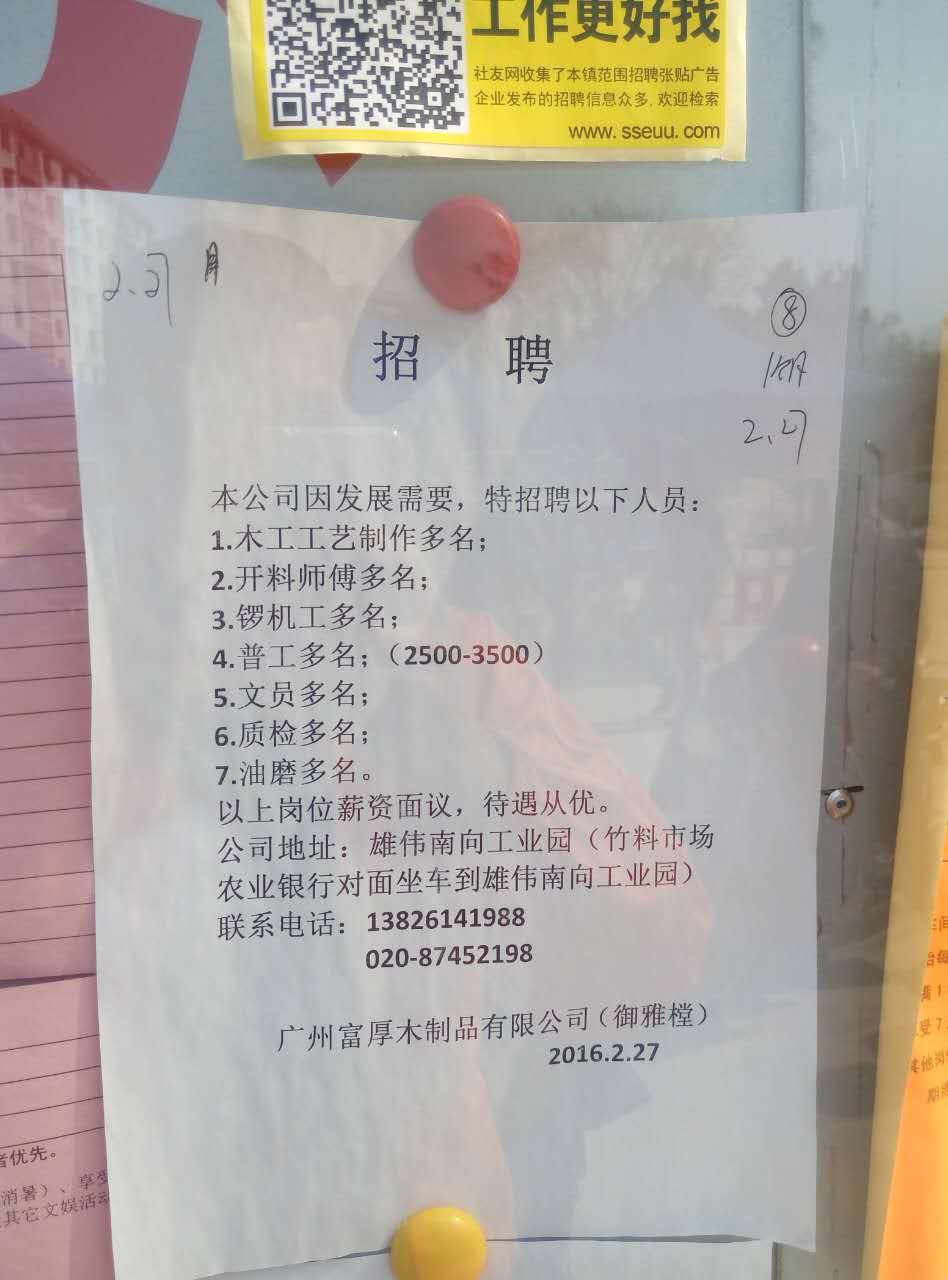 工作更好找
社友网收集了本镇范围招聘张贴广告
企业发布的招聘信息众多,欢迎检索
www.sseuu.com
2.27 月
⑧
1个月
2.27
招 聘
本公司因发展需要，特招聘以下人员：
1.木工工艺制作多名；
2.开料师傅多名；
3.锣机工多名；
4.普工多名；（2500-3500）
5.文员多名；
6.质检多名；
7.油磨多名。
以上岗位薪资面议，待遇从优。
公司地址：雄伟南向工业园（竹料市场
农业银行对面坐车到雄伟南向工业园）
联系电话：13826141988
020-87452198
广州富厚木制品有限公司（御雅樘）
2016.2.27
者优先。
消暑）、享受
其它文娱活动
车间
台每
满1
受7.
其他岗
期